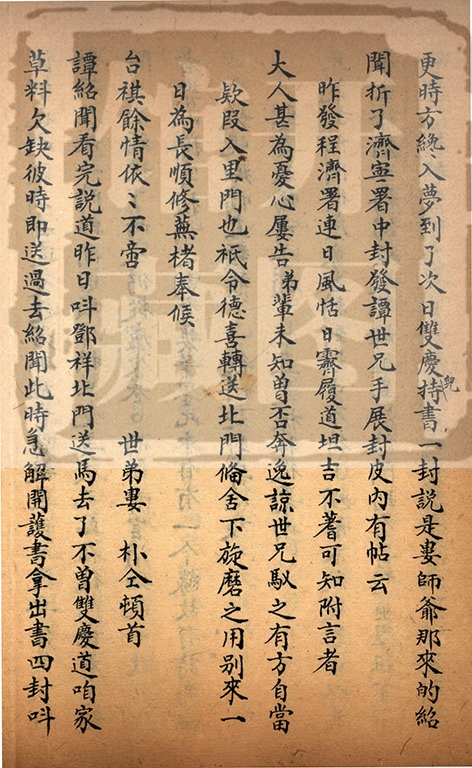 更時方終入夢到了次日雙慶兒持書一封說是婁師爺那來的紹
聞折了濟寧署中封發譚世兄手展封皮內有帖云
昨發程濟署連日風恬日霽履道坦吉不蓍可知附言者
大人甚為憂心屢告弟輩未知曾否奔逸諒世兄馭之有方自當
欵段入里門也祇令德喜轉送北門備舍下旋磨之用別來一
日為長順修蕪楮奉候
台祺餘情依〻不啻 世弟婁 朴仝頓首
譚紹聞看完說道昨日呌鄧祥北門送馬去了不曾雙慶道咱家
草料欠缺彼時即送過去紹聞此時急解開護書拿出書四封呌